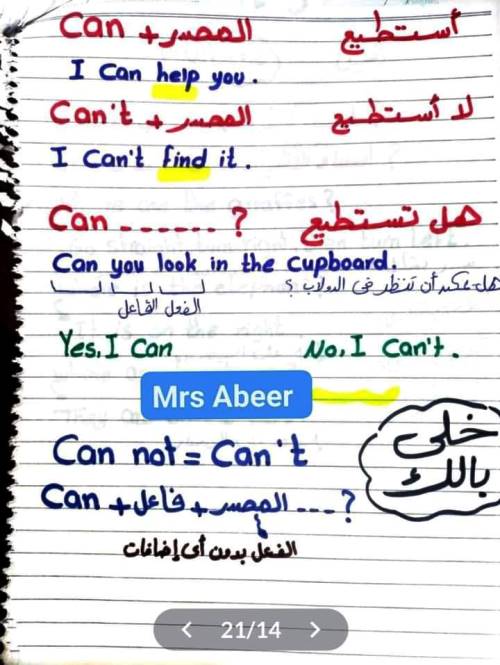 Can + المصدر أستطيع
I Can help you.
Can't + المصدر لا أستطيع
I Can't find it.
Can ------ ? هل تستطيع
Can you look in the cupboard.
هل يمكنك أن تنظر فى الدولاب ؟
الفعل الفاعل
Yes, I Can No, I Can't.
Mrs Abeer
خلى
بالك
Can not = Can't
Can + فاعل + المصدر ---?
الفعل بدون أى إضافات
21/14